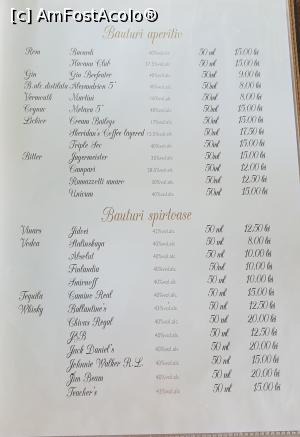 [c] AmFostAcolo®
Bauturi aperitiv
Rom Bacardi 50 ml 15.00 lei
Havana Club 37.5%vol.alc. 50 ml 15.00 lei
Gin Gin Beefeater 40%vol.alc. 50ml 9.00 lei
B.alc.distilata Alexandrion 5* 40%vol.alc. 50ml 8.00 lei
Vermouth Martini 50ml 8.00 lei
Cognac Metaxa 5* 50ml 15.00 lei
Lichior Cream Baileys 17%vol.alc. 50ml 15.00 lei
Sheridan's Coffee layered 50ml 17.50 lei
Triple Sec 50ml 15.00 lei
Bitter Jagermeister 35%vol.alc. 50ml 15.00 lei
Campari 50ml 12.00 lei
Ramazzotti amaro 30%vol.alc. 50ml 12.50 lei
Unicum 40%vol.alc. 50ml 15.00 lei
Bauturi spirtoase
Vinars Jidvei 50 ml 12.50 lei
Vodca Stalinskaya 40%vol.alc. 50 ml 8.00 lei
Absolut 40%vol.alc. 50 ml 10.00 lei
Finlandia 40%vol.alc. 50ml 10.00 lei
Smirnoff 40%vol.alc. 50 ml 10.00 lei
Tequila Camino Real 40%vol.alc. 50 ml 15.00 lei
Whisky Ballantine's 40%vol.alc. 50 ml 12.50 lei
Chivas Regal 40%vol.alc. 50 ml 20.00 lei
J&B 40%vol.alc. 50 ml 12.50 lei
Jack Daniel's 40%vol.alc. 50 ml 20.00 lei
Johnnie Walker R.L. 40%vol.alc. 50 ml 15.00 lei
Jim Beam 40%vol.alc. 50 ml 20.00 lei
Teacher's 40%vol.alc. 50 ml 15.00 lei